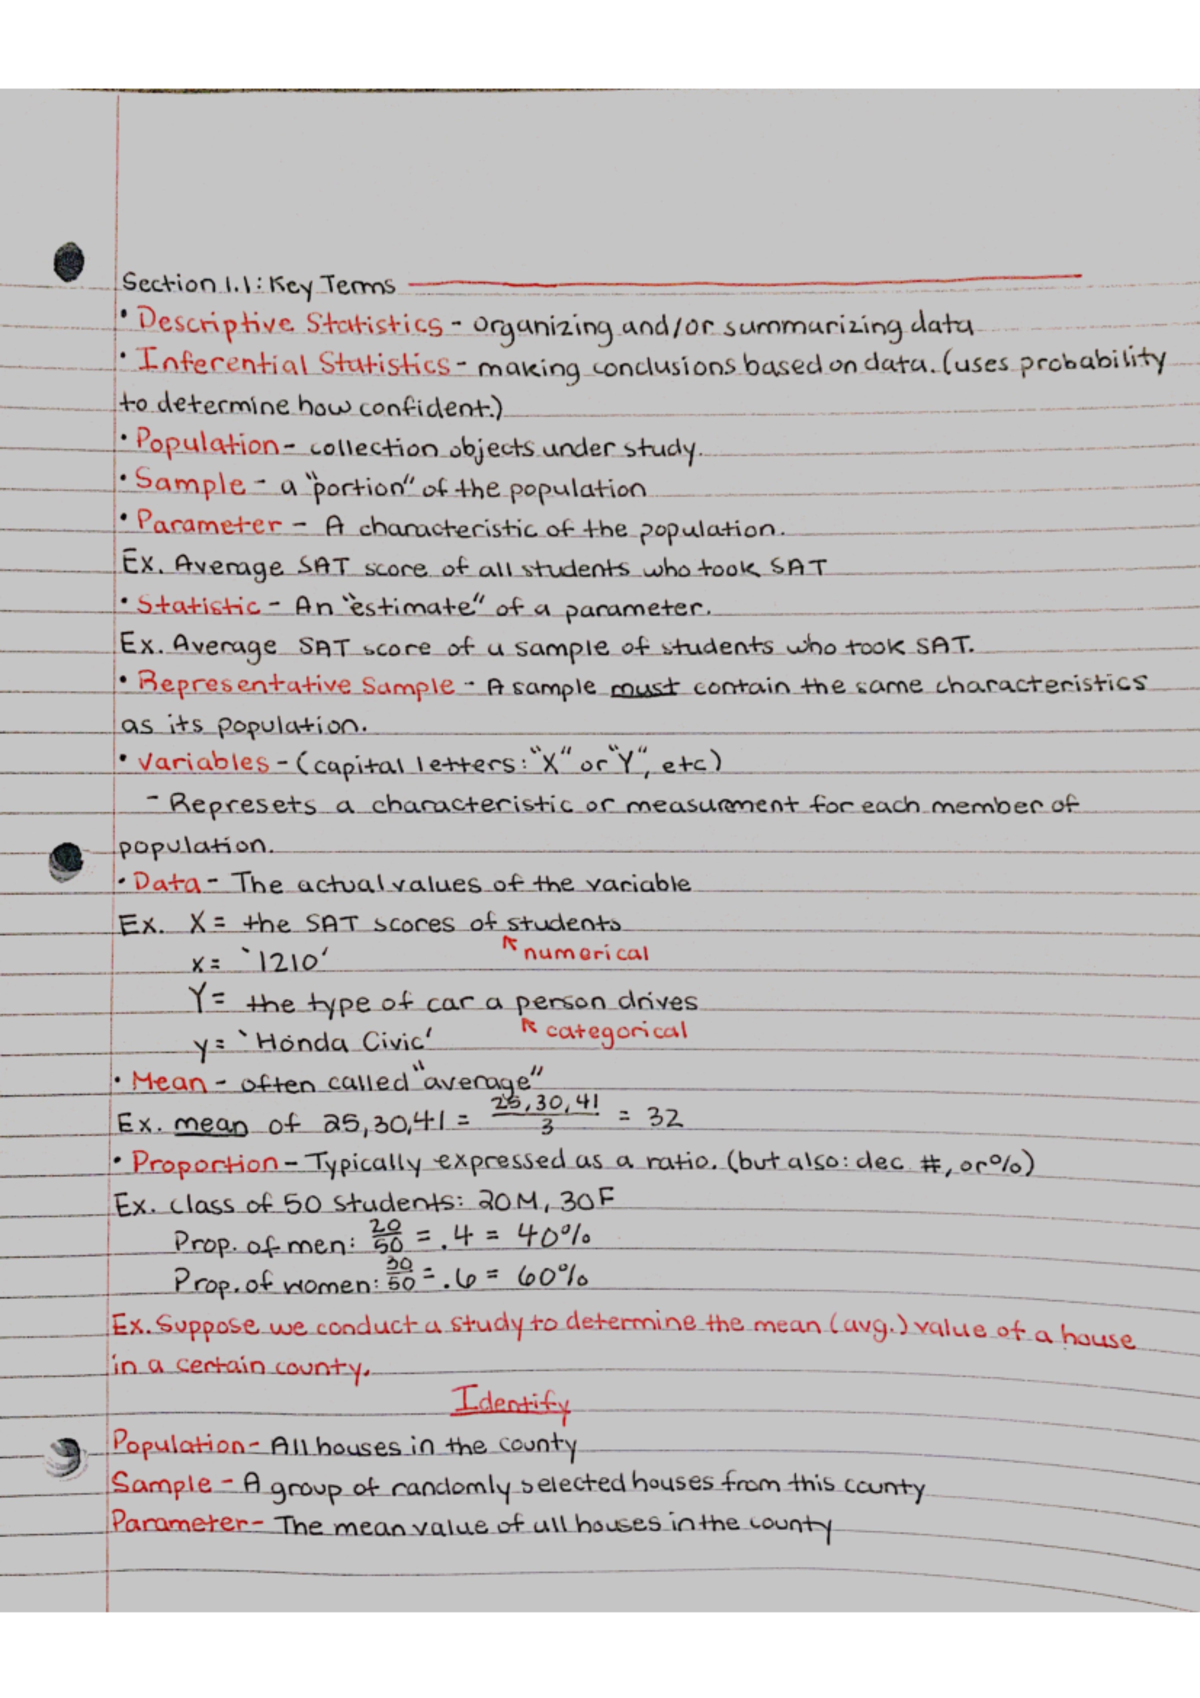 Section 1.1: Key Terms
• Descriptive Statistics - organizing and/or summarizing data
• Inferential Statistics - making conclusions based on data. (uses probability
to determine how confident.)
• Population - collection objects under study.
• Sample - a "portion" of the population
• Parameter - A characteristic of the population.
Ex. Average SAT score of all students who took SAT
• Statistic - An "estimate" of a parameter.
Ex. Average SAT score of a sample of students who took SAT.
• Representative Sample - A sample must contain the same characteristics
as its population.
• Variables - (capital letters: "X" or "Y", etc)
- Represets a characteristic or measurment for each member of
population.
• Data - The actual values of the variable
Ex. X = the SAT scores of students
↖ numerical
x = `1210'
Y = the type of car a person drives
↖ categorical
y = `Honda Civic'
• Mean - often called "average"
Ex. mean of 25,30,41 = 25,30,41/3 = 32
• Proportion - Typically expressed as a ratio. (but also: dec. #, or %)
Ex. class of 50 students: 20M, 30F
Prop. of men: 20/50 = .4 = 40%
Prop. of women: 30/50 = .6 = 60%
Ex. Suppose we conduct a study to determine the mean (avg.) value of a house
in a certain county.
Identify
Population - All houses in the county
Sample - A group of randomly selected houses from this county
Parameter - The mean value of all houses in the county